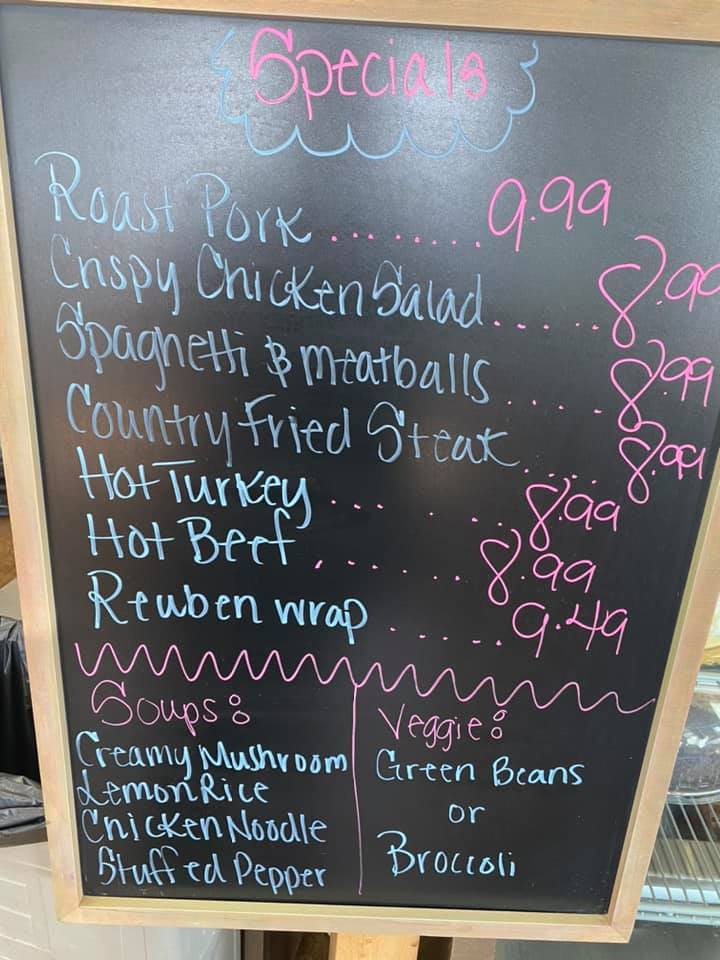 Specials
Roast Pork ........ 9.99
Crispy Chicken Salad ...... 8.99
Spaghetti & meatballs ...... 8.99
Country Fried Steak ...... 8.99
Hot Turkey ... . . .. 8.99
Hot Beef ....... 8.99
Reuben wrap ...... 9.49
Soups:
Creamy Mushroom
Lemon Rice
Chicken Noodle
Stuffed Pepper
Veggie:
Green Beans
or
Broccoli